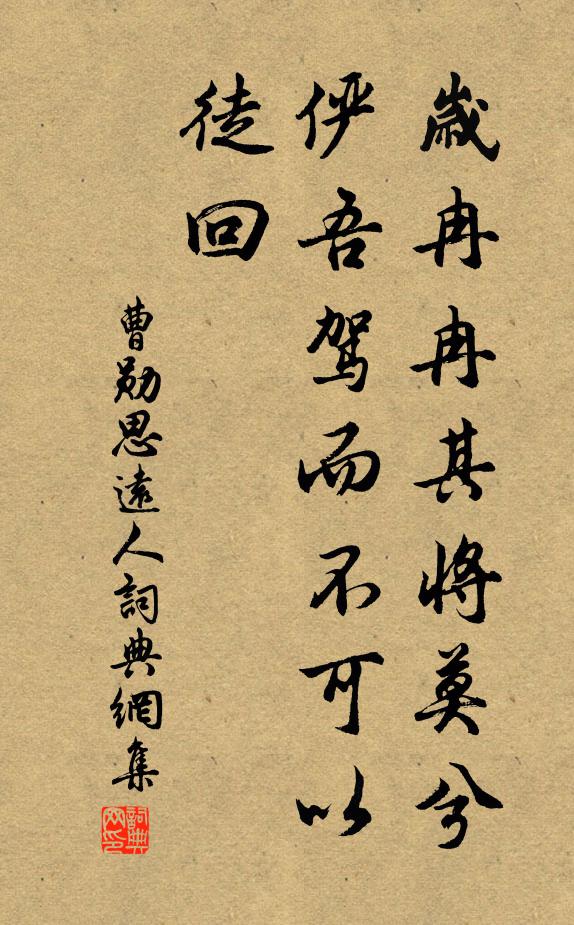 歲冉冉其將莫兮
俨吾駕而不可以
徒回
曹勛思遠人詞典網集
詞典网印